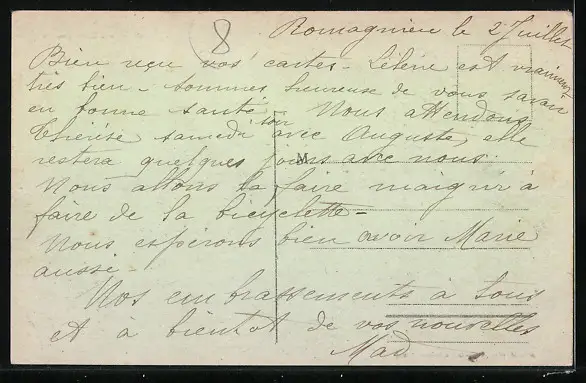 8
Romagnieu le 2 Juillet
Bien reçu vos cartes - est vraiment
très bien - Sommes heureuse de vous savoir
en bonne santé - Nous attendons
Thérèse samedi soir avec Auguste, elle
restera quelques jours avec nous.
M
Nous allons la faire maigrir à
faire de la bicyclette -
Nous espérons bien avoir Marie
aussi -
Nos embrassements à tous
et à bientot de vos nouvelles
Mad